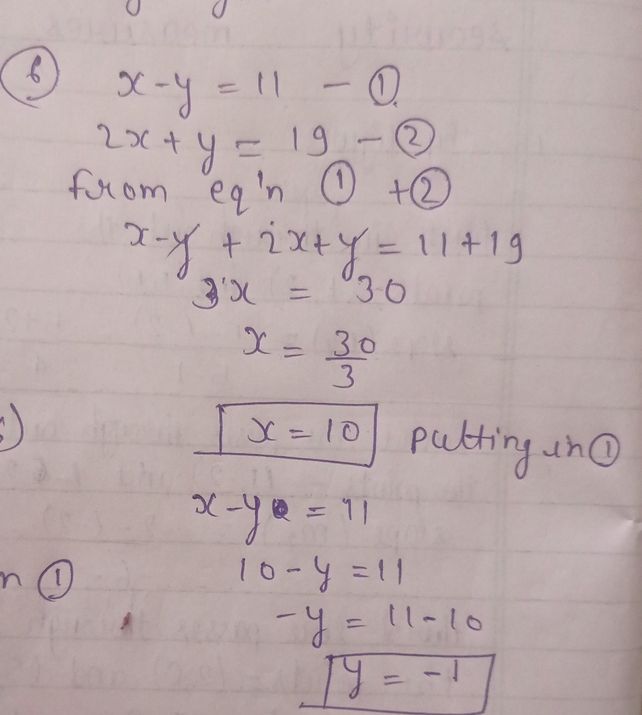 ⑥ x-y = 11 - ①
2x+y = 19 - ②
from eq'n ① +②
x-y + 2x+y = 11+19
3x = 30
x = 30/3
x = 10 putting in ①
x-y = 11
10-y = 11
n ①
-y = 11-10
y = -1